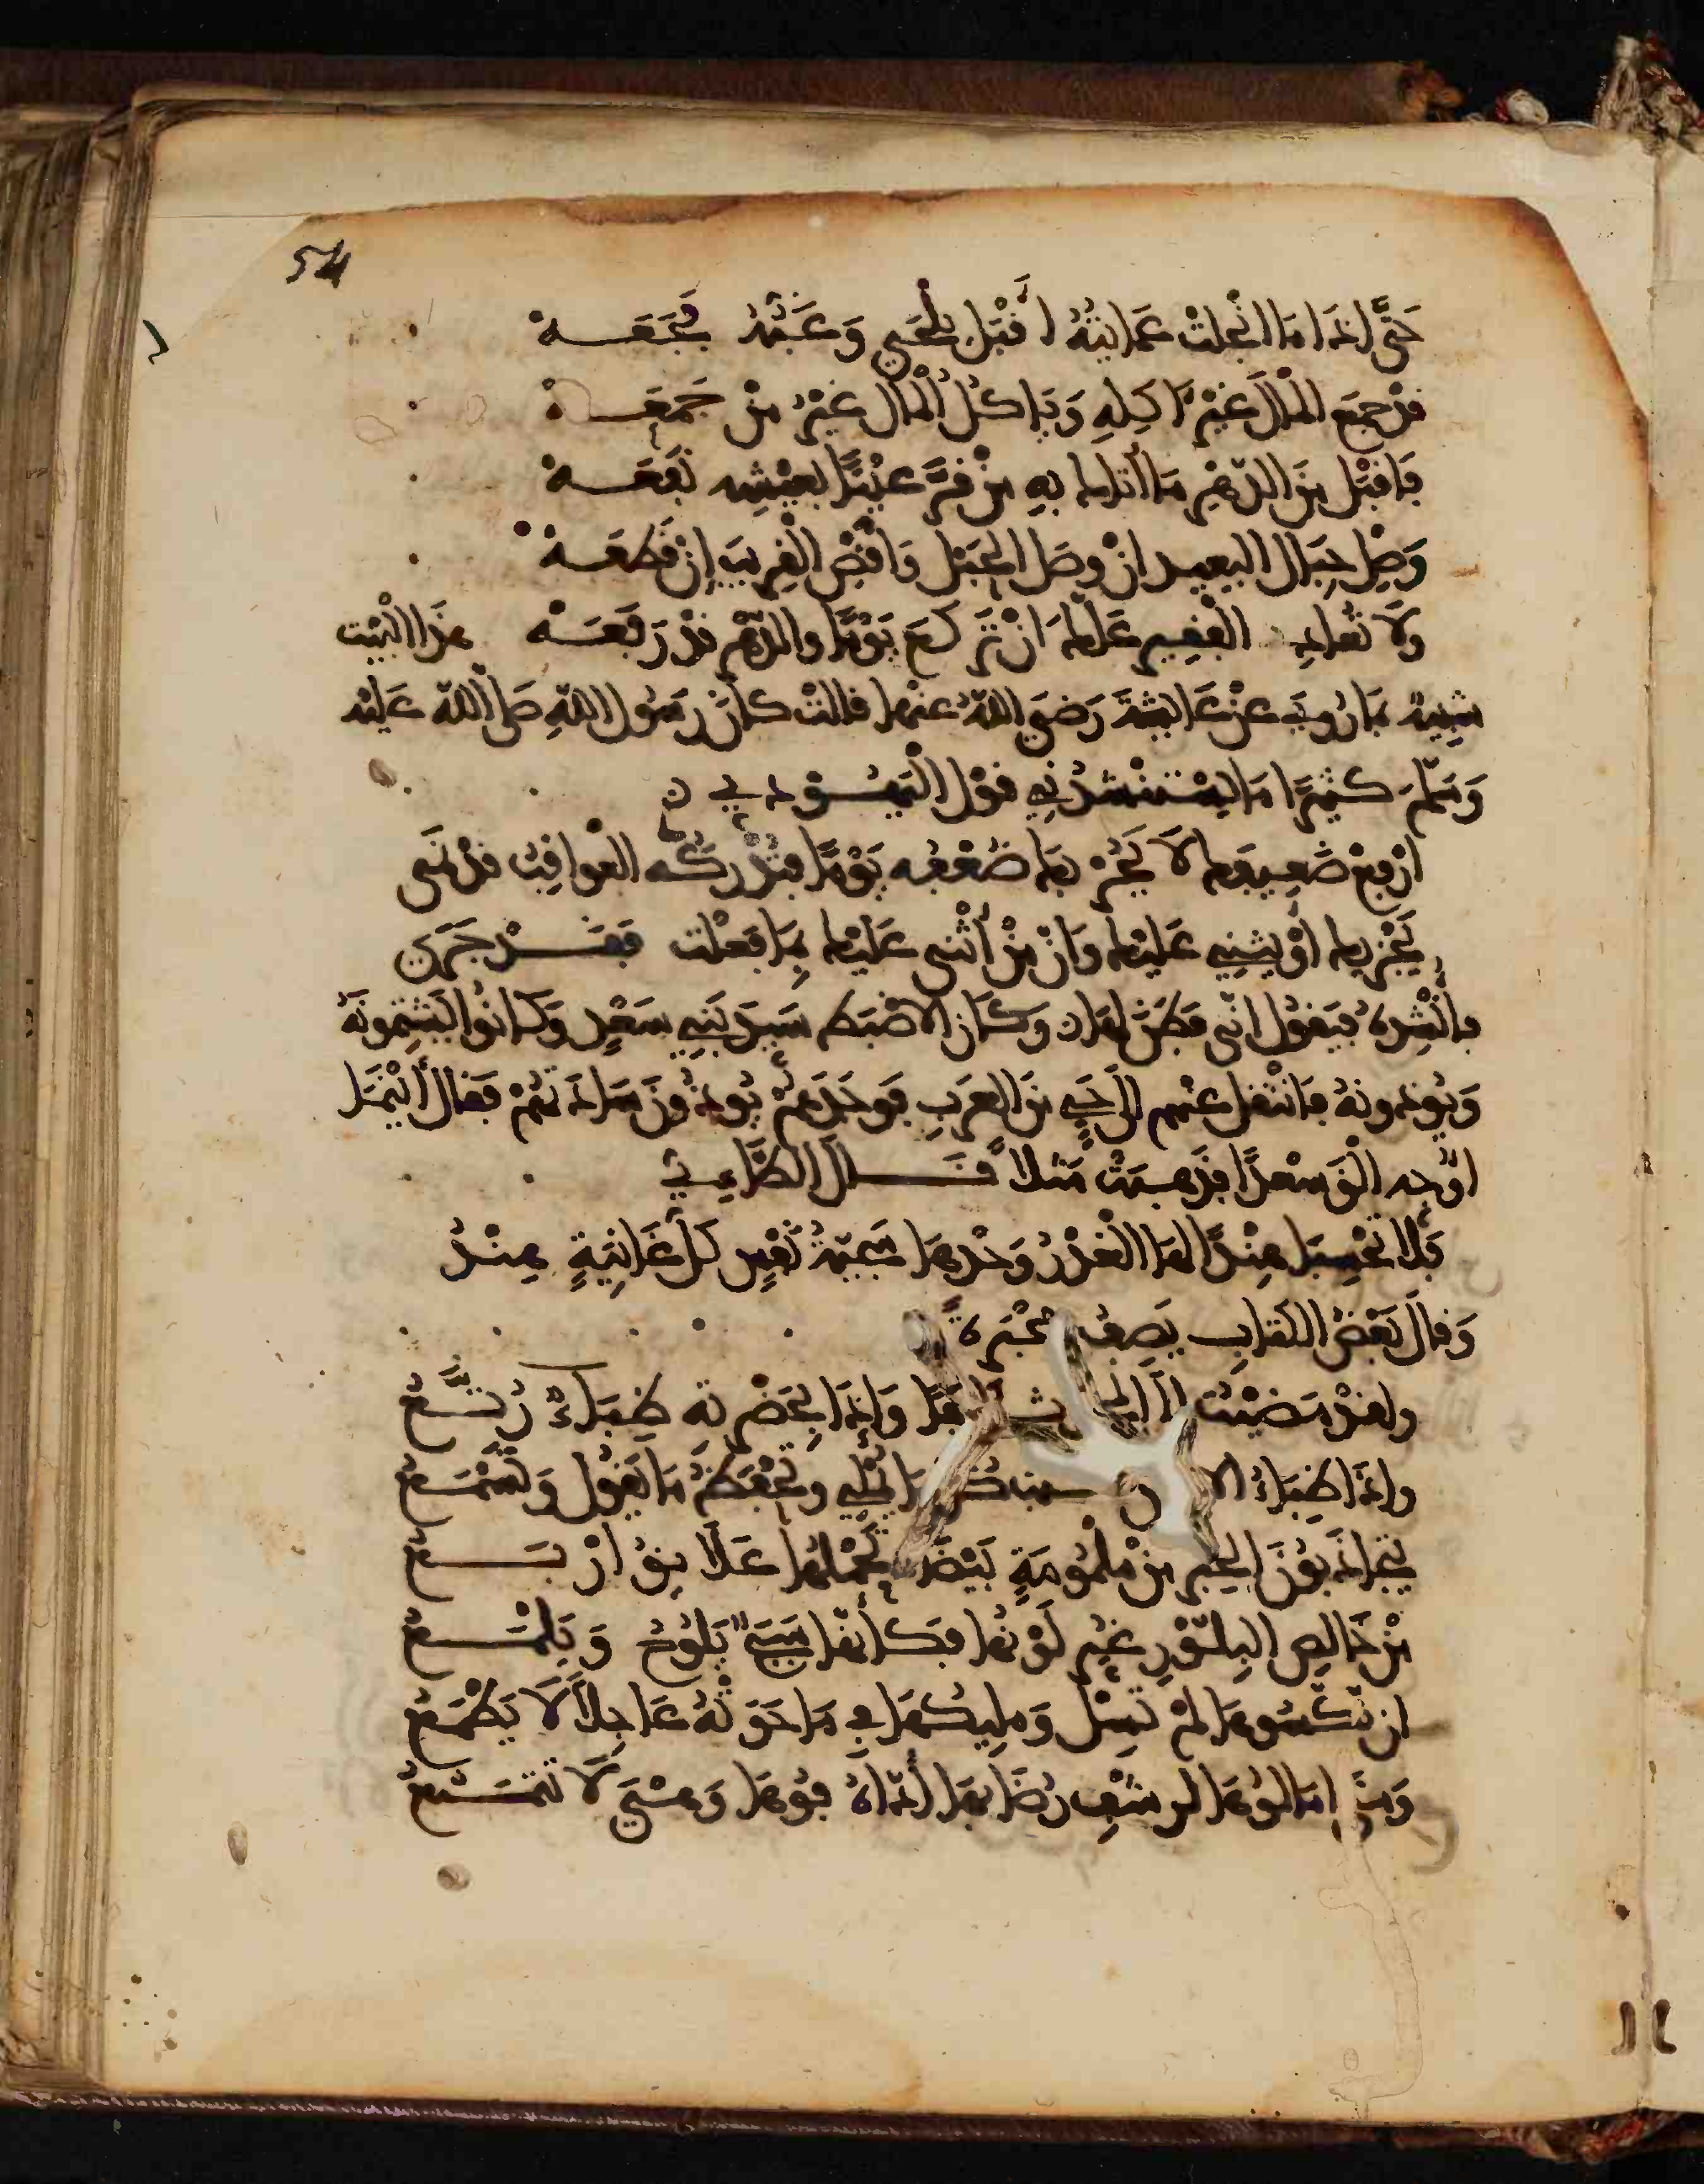 54
حَتَّى اِذَا مَا انْجَلتْ عَمَايَتُهُ اَقْبَلَ يَلْحَي وَغَيُّهُ فَجَعَــهْ
قدْ جمَع المْالَ غَيْرُ ءَاكِلِهِ وَيَاكُلُ الْمْالَ غيْرُ مَنْ جَمَعَــهْ
فَاقبَلْ مِنَ الدّهْرِ مَا أتاك بِهِ مَنْ قَرَّ عَيْنًا بعَيْشِه نَفَعَــهْ
وَصِلْ حِبَال البعيد انْ وصَل الحَبْلَ وَاقْصِ الْقرِيبَ اِنْ قَطعَــهْ
ولاَ تعُادِ الفَقِير عَلَّك اَنْ تَرْكَعَ يَوْمًا والدّهْر قدْ رَفَعَــهْ هذَا الْبَيْت
شبِيهٌ بمَا رُوِيَ عنْ عَايشَةَ رَضيَ اللهُ عنها قالتْ كانَ رَسُول اللهِ صَلى اللهُ عَليْه
وَسَلّمَ كثيرًا مَا يسْتنْشدُنِي قوْل الْيَهُــوْدِي
ارْفعْ ضَعِيفَك لاَ يَحُرْ بك ضُعْفُه يَوْمًا فتُدْركَه العَواقِبُ قدْ نَمَى
يَجْزيك اَوْ يثنِي عَليْك وَانْ مَنْ أثْنى عَليْك بِمَا فَعلْت فَقَــدْ جَزَى
فأنْشِدهُ فيَقول اِنّي فَطِنْ لهَا وَكان الاضْبَط سَيدَ بَنِي سَعْدٍ وَكانُوا يَشْتِمونَهُ
وَيُوذونهُ فانْتَقل عنْهم اِلى حَيٍ منَ العرَبِ فوَجَدَهمْ يُوذُونَ سَادَتهُمْ فقال أيْنَمَا
اوَجّه الْقَ سَعْدًا فذَهبَتْ مَثلاً قــال الطَّاءِيّ
فَلا تحْسِبَا هِنْدًا لهَا الغَدْرُ وَحْدهَا سَجيّةُ نَفْسٍ كلّ غَانِيَةٍ هِنْدُ
وَقالَ بَعْضُ الكتابِ يَصِفُ مَحْبَرَةً
ولقدْ مَضيْتُ الَى وَاِذَا بحَضْرَتهِ ظِبَاءٌ رُتَّــعُ
واذَا ظِبَاءُ الا وتحْفَظُ مَا يَقُول وَتسْمَــعُ
يتجاذَبُونَ الحِبْر مِنْ مَلْمُومَةٍ بَيْضَاءَ تَحْملهَا عَلاَيِقُ اَرْبَــعُ
مِنْ خَالِصِ البِلّوْرِ غُيّر لَوْنُهَا فكأنّهَا سَبَجٌ يَلوُحُ وَيَلمَــعُ
اِن نَكّسُوهَا لمْ تَسِلْ وَملِيكُهَا فِي مَا حَوَتْهُ عَاجِلاً لاَ يَطْمَعُ
وَمَتَى امَالوُهَا لرشْفِ رُضَابهَا أدّاهُ فُوهَا وَهْيَ لاَ تَتَمَــنّعُ